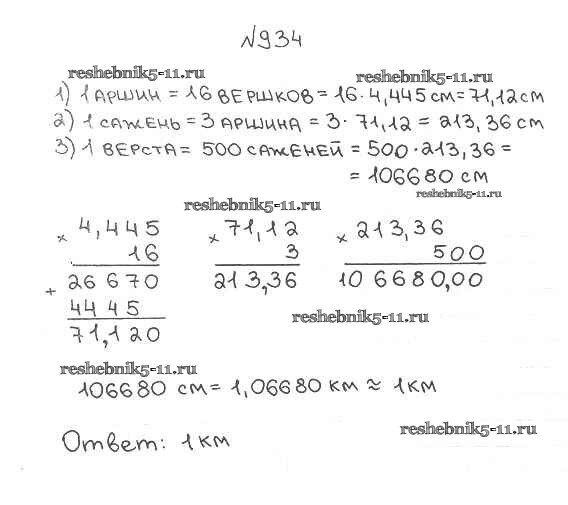 №934
reshebnik5-11.ru reshebnik5-11.ru
1) 1 аршин = 16 вершков = 16 · 4,445 см = 71,12 см
2) 1 сажень = 3 аршина = 3 · 71,12 = 213,36 см
3) 1 верста = 500 саженей = 500 · 213,36 =
= 106680 см
reshebnik5-11.ru
reshebnik5-11.ru
× 4,445 × 71,12 × 213,36
16 3 500
+ 26 670 213,36 10 6680,00
44 45
71,120
reshebnik5-11.ru
reshebnik5-11.ru
106680 см = 1,06680 км ≈ 1км
reshebnik5-11.ru
Ответ: 1 км